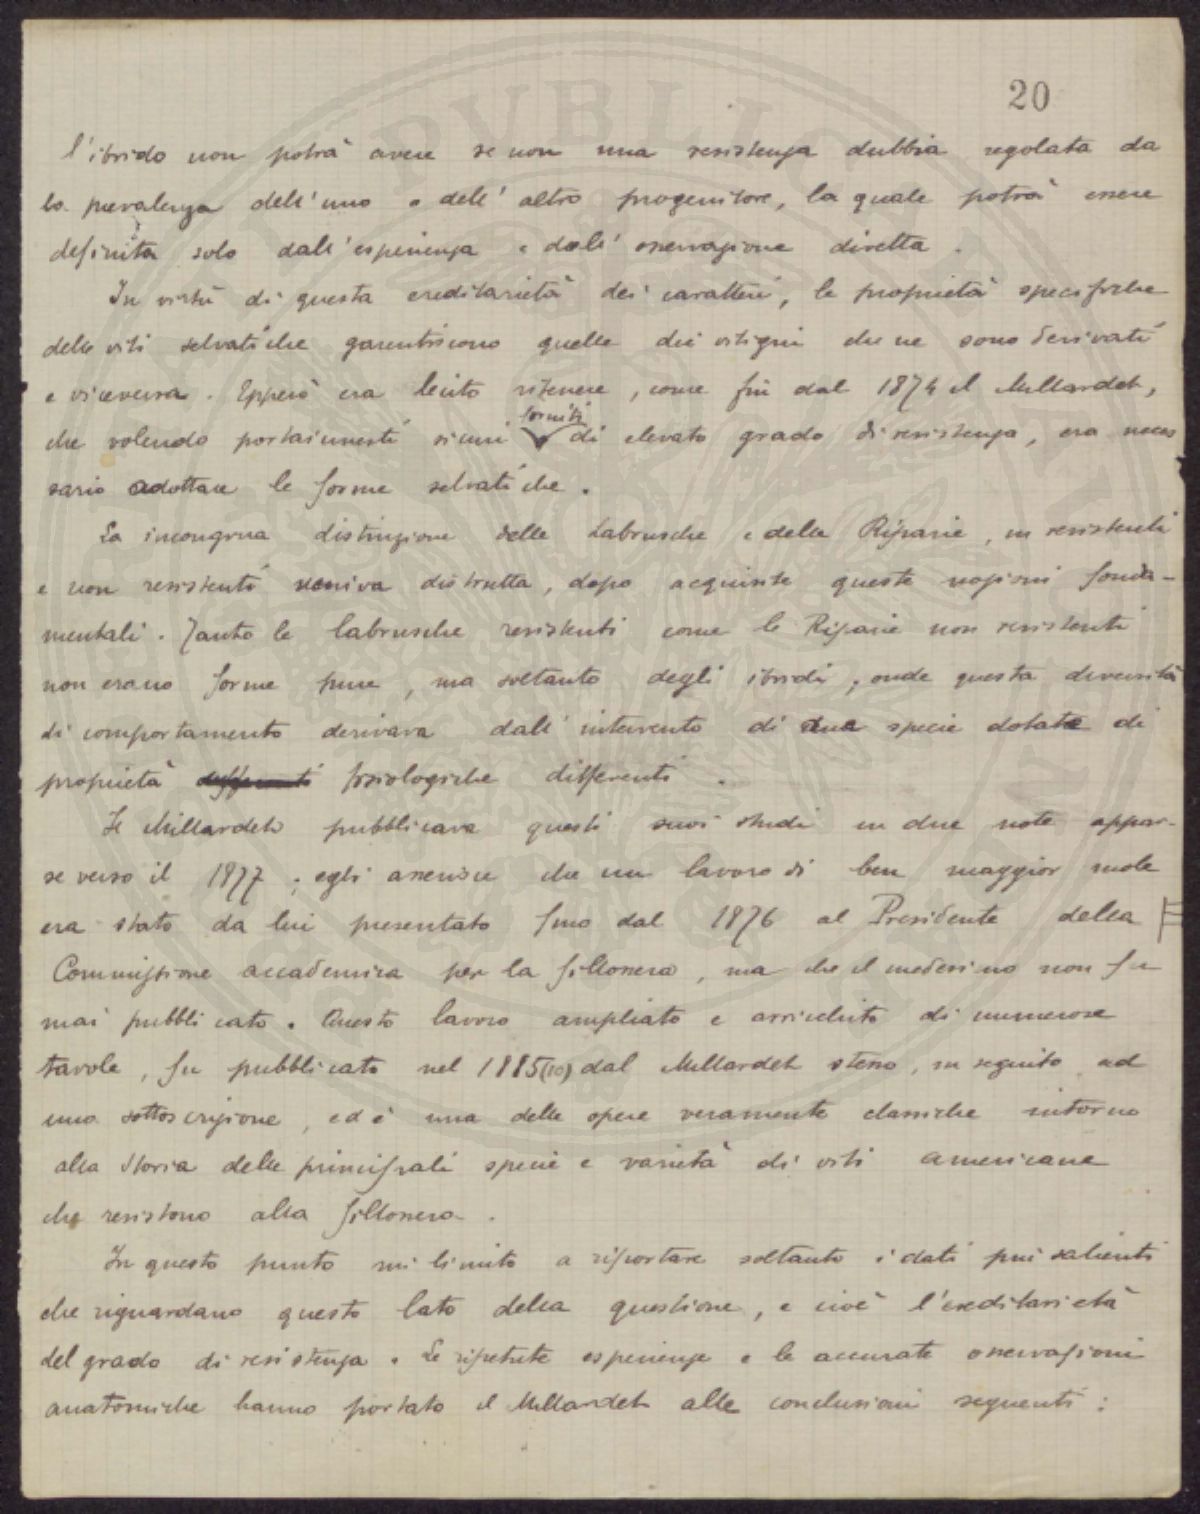 20
l'ibrido non potrà avere se non una resistenza dubbia regolata da
la prevalenza dell'uno o dell'altro progenitore, la quale potrà essere
definita solo dall'esperienza e dall'osservazione diretta.
In virtù di questa ereditarietà dei caratteri, le proprietà specifiche
delle viti selvatiche garentiscono quelle dei vitigni che ne sono derivati
e viceversa. Epperò era lecito ritenere, come fin dal 1874 il Millardet,
che volendo portainnesti sicuri forniti di elevato grado di resistenza, era neces
sario adottare le forme selvatiche.
La incongrua distinzione delle Labrusche e delle Riparie, in resistenti
e non resistenti veniva distrutta, dopo acquisite queste nozioni fonda-
mentali. Tanto le labrusche resistenti come le Riparie non resistenti
non erano forme pure, ma soltanto degli ibridi, onde questa diversità
di comportamento derivava dall'intervento di due specie dotate di
proprietà differenti fisiologiche differenti.
Il Millardet pubblicava questi suoi studi in due note appar-
se verso il 1877; egli asserisce che un lavoro di ben maggior mole
era stato da lui presentato fino dal 1876 al Presidente della
Commissione accademica per la fillossera, ma che il medesimo non fu
mai pubblicato. Questo lavoro ampliato e arricchito di numerose
tavole, fu pubblicato nel 1885(10) dal Millardet stesso, in seguito ad
una sottoscrizione, ed è una delle opere veramente classiche intorno
alla storia delle principali specie e varietà di viti americane
che resistono alla fillossera.
In questo punto mi limito a riportare soltanto i dati più salienti
che riguardano questo lato della questione, e cioè l'ereditarietà
del grado di resistenza. Le ripetute esperienze e le accurate osservazioni
anatomiche hanno portato il Millardet alle conclusioni seguenti: